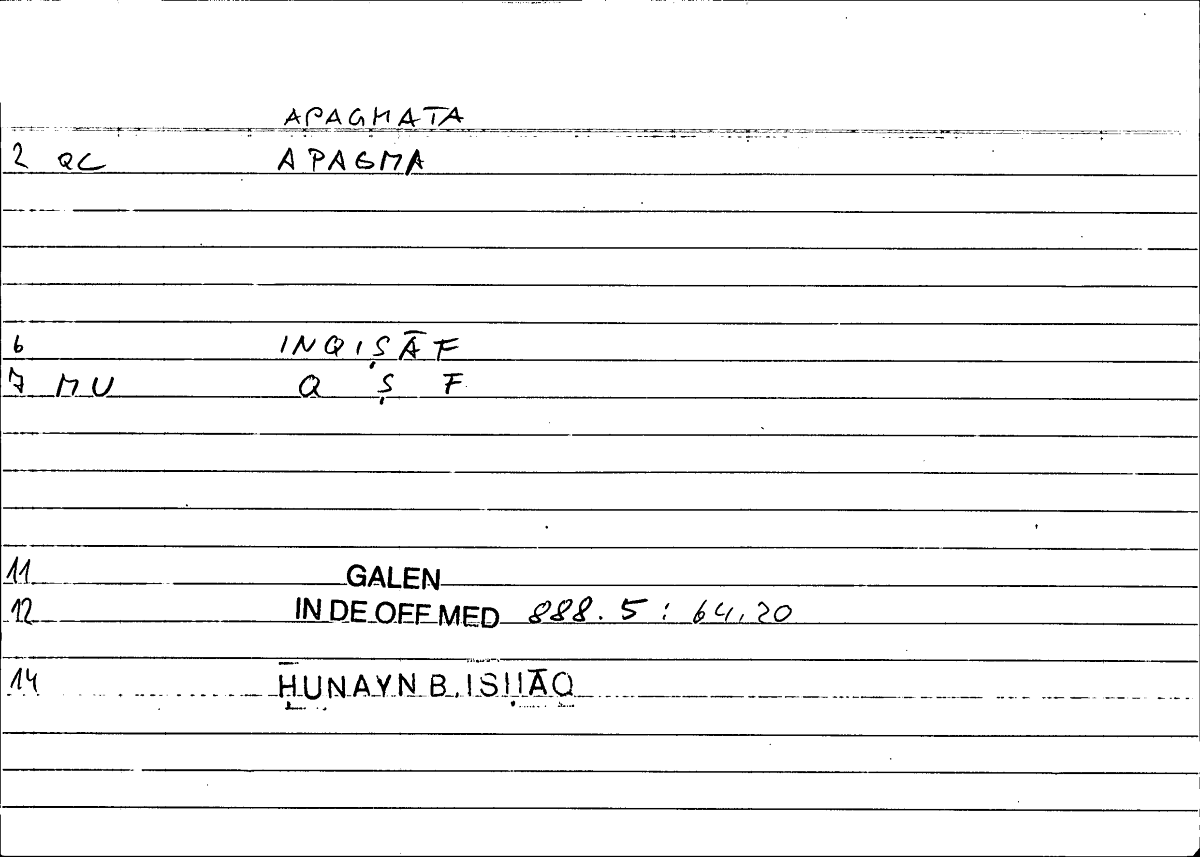 APAGMATA
2 QC APAGMA
6 INQIṢĀF
7 MU Q Ṣ F
11 GALEN
12 IN DE OFF MED 888.5 : 64,20
14 ḤUNAYN B. ISḤĀQ